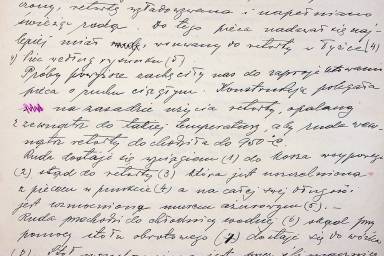 czony, retortę wyładowywano i napełniano
świeżą rudą. Do tego pieca nadawał się naj-
lepiej miał, wsuwany do retorty w łyżce (4)
4) Piec według rysunku (5).
Próby powyższe zachęciły nas do zaprojektowania
pieca o ruchu ciągłym. Konstrukcja polegała
na zasadzie użycia retorty, opalanej
z zewnątrz do takiej temperatury, aby ruda wew-
nątrz retorty dochodziła do 950°C.
Ruda dostaje się wyciągiem (1) do kosza wsypowego
(2) skąd do retorty (3) która jest uszczelniona
z piecem w punkcie (4) a na całej swej długości
jest wzmocniona murem ażurowym (5). —
Ruda przechodzi do chłodnicy wodnej (6) skąd przy
pomocy stołu obrotowego (7) dostaje się do wózka